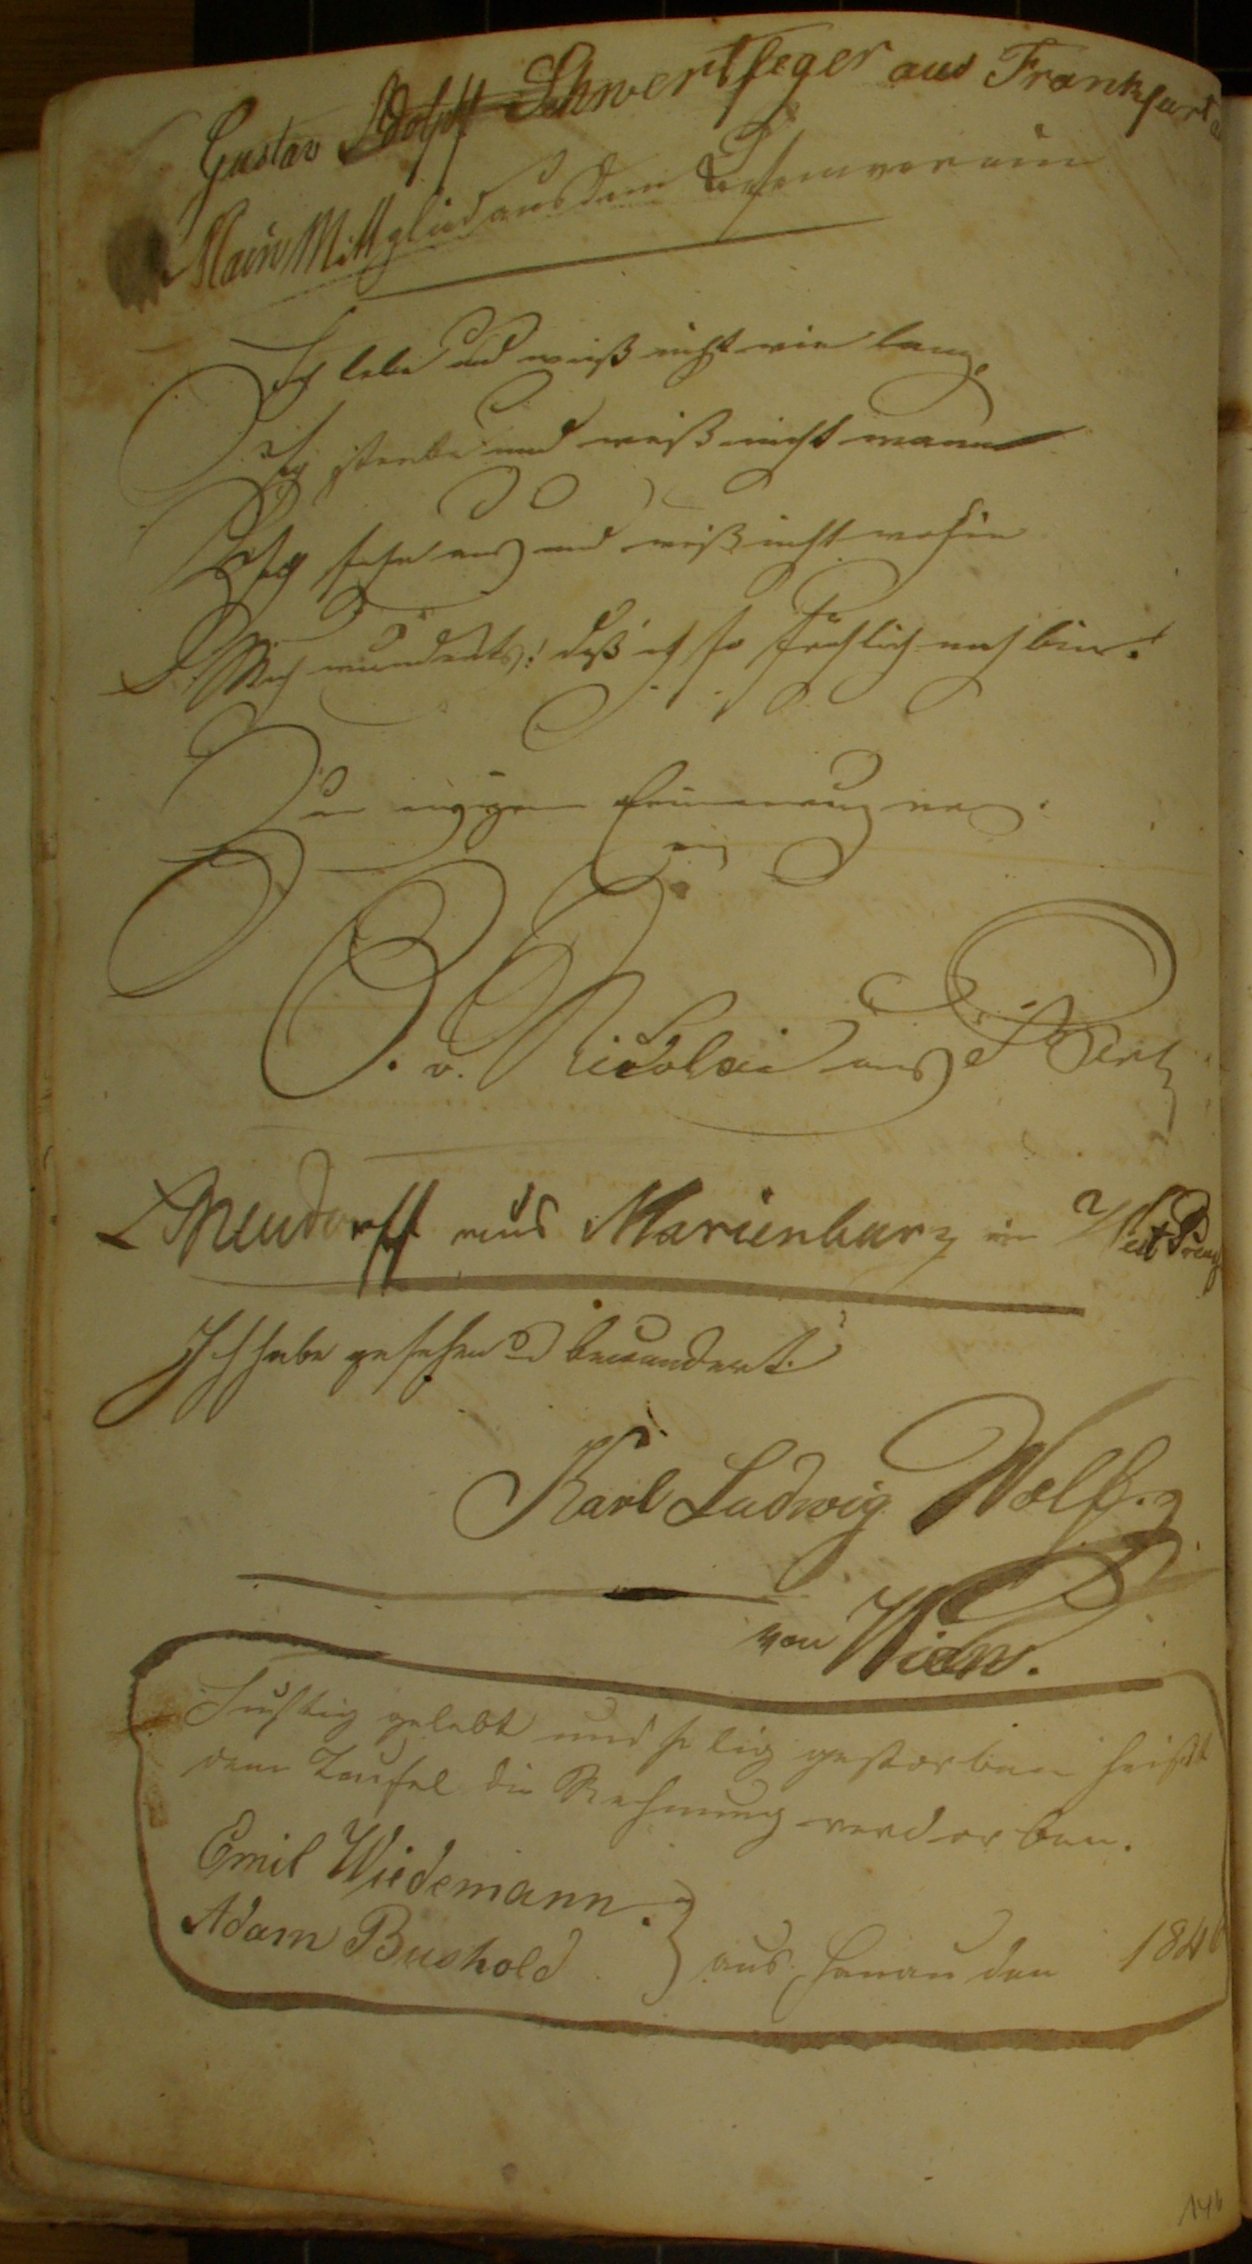 Gustav Adolff Schwertfeger aus Frankfurt a
Main Mittglied aus dem
Ich lebe und weiß nicht wie lang,
Ich sterbe und weiß nicht wann
Ich fahre aus und weiß nicht wohin
Mich wunderts! daß ich so fröhlich noch bin!
Zur Erinnerung
v. Nicolai aus
Neudorff aus Marienburg in West Preuß
Ich habe gesehen u bewundert.
Karl Ludwig Wolf.
von Wien.
Lustig gelebt und selig gestorben heißt
dem Teufel die Rechnung verdorben.
Emil Wiedemann.
Adam Bushold } aus Hanau den 1846
146